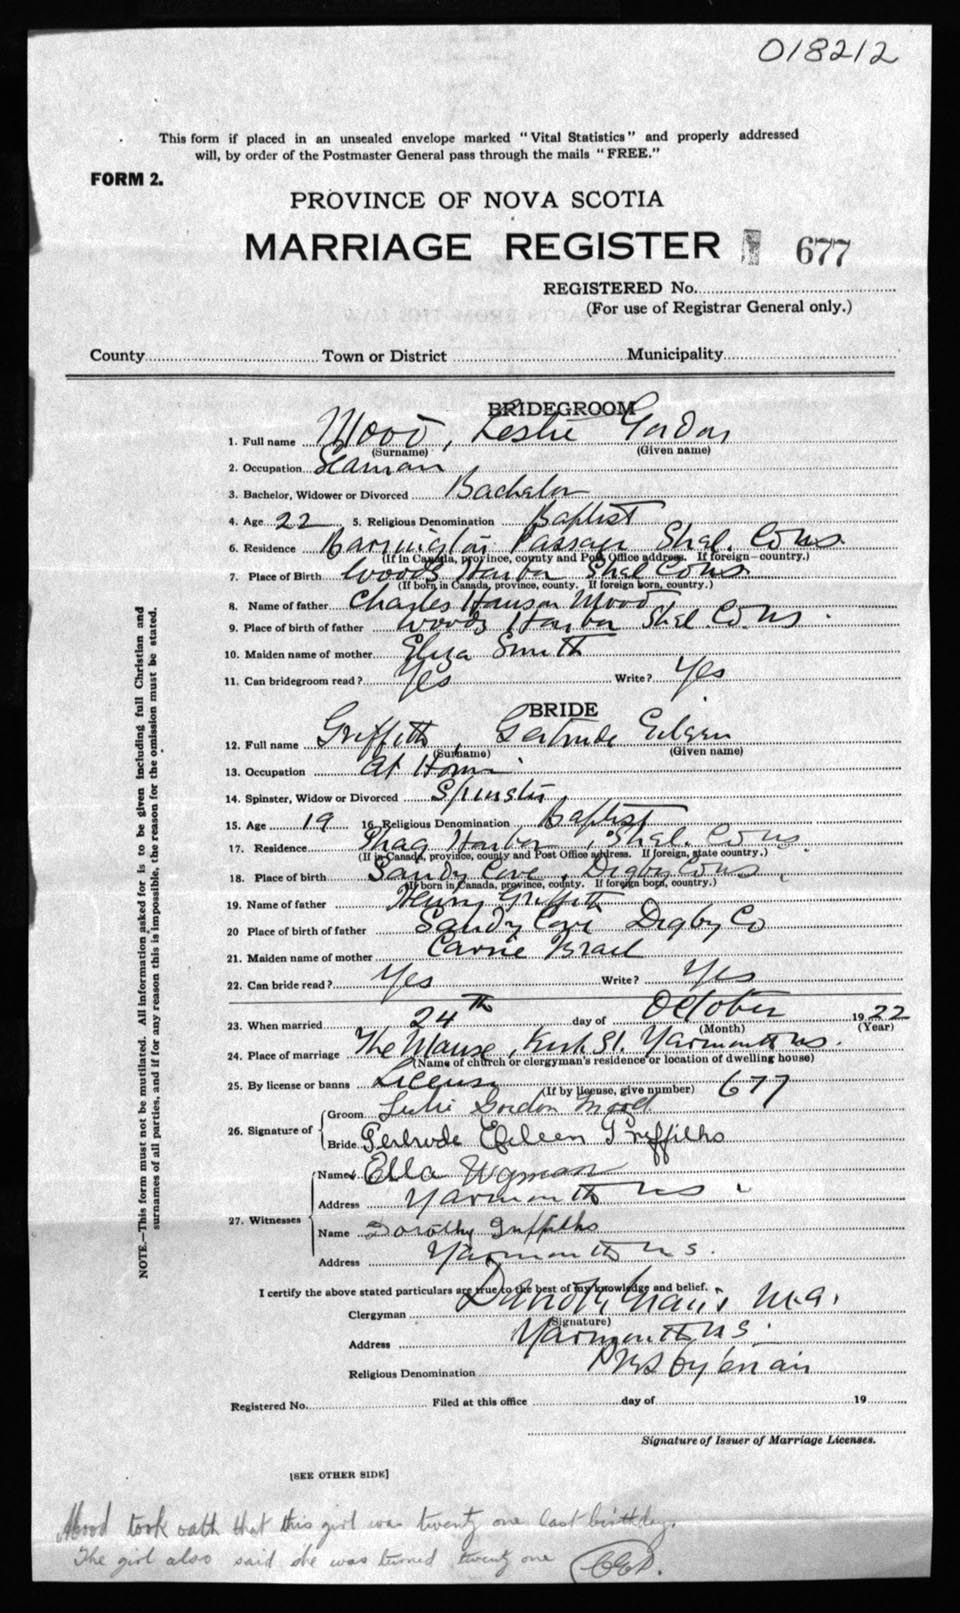 018212
This form if placed in an unsealed envelope marked "Vital Statistics" and properly addressed
will, by order of the Postmaster General pass through the mails "FREE."
FORM 2.
PROVINCE OF NOVA SCOTIA
MARRIAGE REGISTER 677
REGISTERED No.
(For use of Registrar General only.)
County Town or District Municipality
BRIDEGROOM
1. Full name Wood, Leslie Gordon
(Surname) (Given name)
2. Occupation Seaman
3. Bachelor, Widower or Divorced Bachelor
4. Age 22 5. Religious Denomination Baptist
6. Residence Barrington Passage Shel. Co NS.
(If in Canada, province, county and Post Office address. If foreign—country.)
7. Place of Birth Woods Harbor Shel Co NS.
(If born in Canada, province, county. If foreign born, country.)
8. Name of father Charles Hanson Wood
9. Place of birth of father Woods Harbor Shel. Co. NS.
10. Maiden name of mother Eliza Smith
11. Can bridegroom read? Yes Write? Yes
BRIDE
12. Full name Griffith, Gertrude Eileen
(Surname) (Given name)
13. Occupation At Home
14. Spinster, Widow or Divorced Spinster
15. Age 19 16. Religious Denomination Baptist
17. Residence Harbor, Shel. Co NS.
(If in Canada, province, county and Post Office address. If foreign, state country.)
18. Place of birth Sandy Cove, Digby Co NS
(If born in Canada, province, county. If foreign born, country.)
19. Name of father Henry Griffith
20 Place of birth of father Sandy Cove Digby Co
21. Maiden name of mother Carrie
22. Can bride read? Yes Write? Yes
23. When married 24th day of October 1922
(Month) (Year)
24. Place of marriage The Manse, Kirk St. Yarmouth NS.
(Name of church or clergyman's residence or location of dwelling house)
25. By license or banns License (If by license, give number) 677
26. Signature of Groom Leslie Gordon Wood
Bride Gertrude Eileen Griffiths
27. Witnesses Name Ella Wyman
Address Yarmouth NS
Name Dorothy Griffiths
Address Yarmouth NS.
I certify the above stated particulars are true to the best of my knowledge and belief.
Clergyman M.A.
(Signature)
Address Yarmouth NS.
Religious Denomination Presbyterian
Registered No. Filed at this office day of 19
Signature of Issuer of Marriage Licenses.
[SEE OTHER SIDE]
Wood took oath that this girl was twenty one last birthday.
The girl also said she was turned twenty one
NOTE.—This form must not be mutilated. All information asked for is to be given including full Christian and
surnames of all parties, and if for any reason this is impossible, the reason for the omission must be stated.